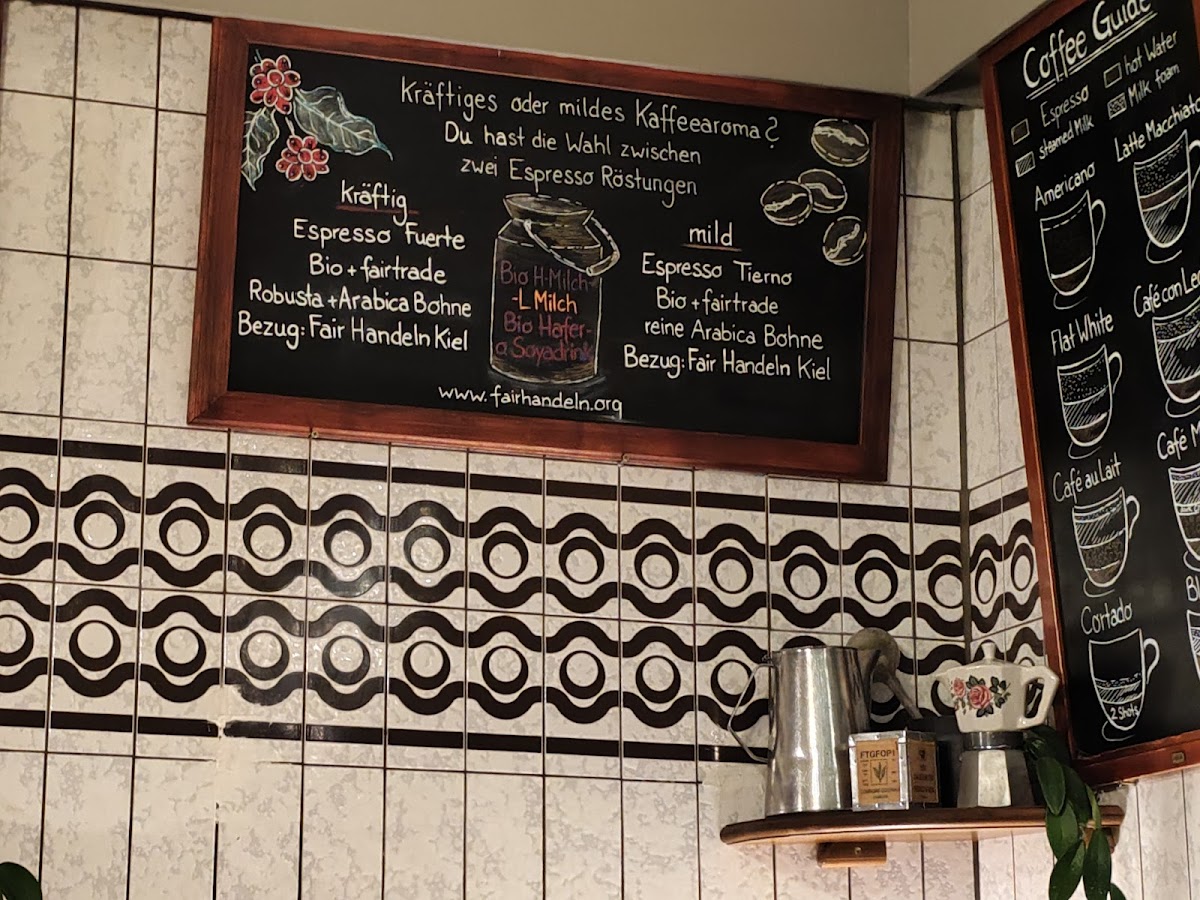 Kräftiges oder mildes Kaffeearoma?
Du hast die Wahl zwischen
zwei Espresso Röstungen
kräftig
Espresso Fuerte
Bio + fairtrade
Robusta + Arabica Bohne
Bezug: Fair Handeln Kiel
Bio H-Milch-
-L Milch
Bio Hafer-
o Soyadrink
mild
Espresso Tierno
Bio + fairtrade
reine Arabica Bohne
Bezug: Fair Handeln Kiel
www.fairhandeln.org
Coffee Guide
Espresso
hot Water
steamed Milk
Milk foam
Americano
Latte Macchiato
Flat White
Café con
Café au Lait
Café
Cortado
2 Shots
FTGFOP1